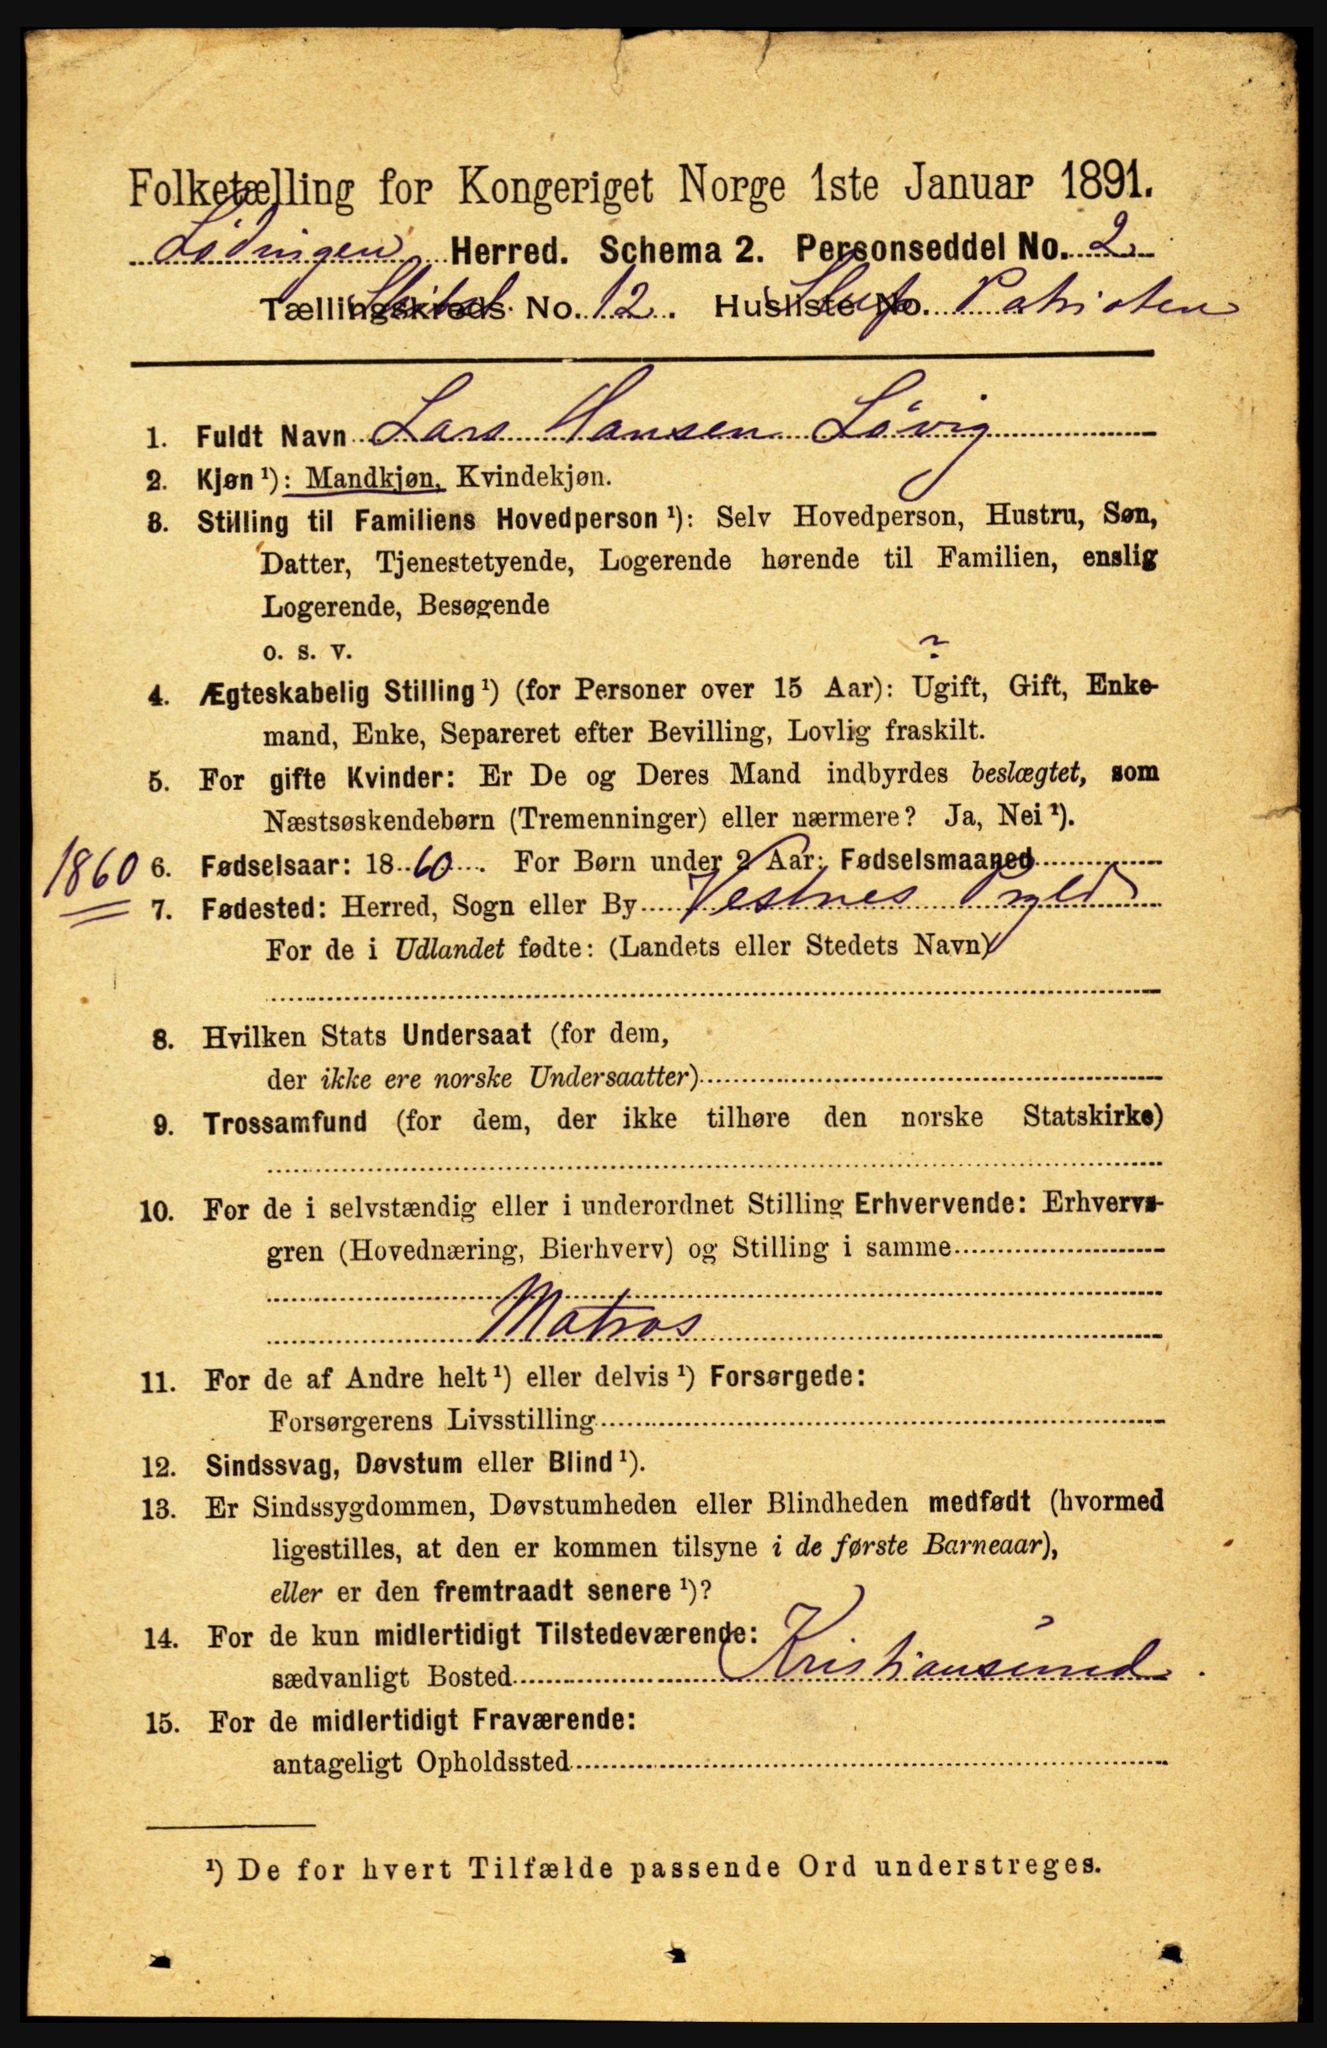 Folketælling for Kongeriget Norge 1ste Januar 1891.
Lödingen Herred. Schema 2. Personseddel No. 2
Tællingskreds No. 12. Husliste No. Patrioten
1. Fuldt Navn Lars Hansen Lövig
2. Kjøn ¹): Mandkjøn, Kvindekjøn.
3. Stilling til Familiens Hovedperson ¹): Selv Hovedperson, Hustru, Søn,
Datter, Tjenestetyende, Logerende hørende til Familien, enslig
Logerende, Besøgende
o. s. v.
?
4. Ægteskabelig Stilling ¹) (for Personer over 15 Aar): Ugift, Gift, Enke-
mand, Enke, Separeret efter Bevilling, Lovlig fraskilt.
5. For gifte Kvinder: Er De og Deres Mand indbyrdes beslægtet, som
Næstsøskendebørn (Tremenninger) eller nærmere? Ja, Nei ¹).
1860 6. Fødselsaar: 1860. For Børn under 2 Aar: Fødselsmaaned
7. Fødested: Herred, Sogn eller By Vestnes Prgld
For de i Udlandet fødte: (Landets eller Stedets Navn)
8. Hvilken Stats Undersaat (for dem,
der ikke ere norske Undersaatter)
9. Trossamfund (for dem, der ikke tilhøre den norske Statskirke)
10. For de i selvstændig eller i underordnet Stilling Erhvervende: Erhvervs-
gren (Hovednæring, Bierhverv) og Stilling i samme
Matros
11. For de af Andre helt ¹) eller delvis ¹) Forsørgede:
Forsørgerens Livsstilling
12. Sindssvag, Døvstum eller Blind ¹).
13. Er Sindssygdommen, Døvstumheden eller Blindheden medfødt (hvormed
ligestilles, at den er kommen tilsyne i de første Barneaar),
eller er den fremtraadt senere ¹)?
14. For de kun midlertidigt Tilstedeværende:
sædvanligt Bosted Kristiansund
15. For de midlertidigt Fraværende:
antageligt Opholdssted
¹) De for hvert Tilfælde passende Ord understreges.